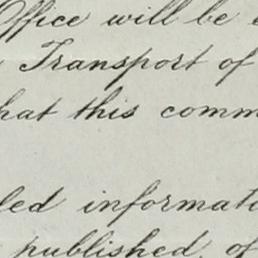 Office will be
Transport of
hat this comm
led informat
published of